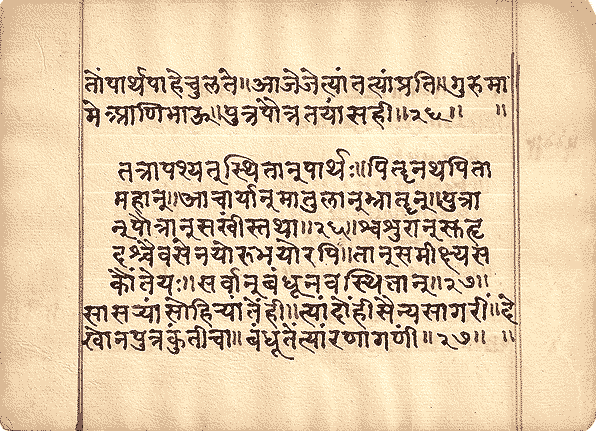 तों पार्थ पाहे चुलते॥ आजे जे त्यां त्यां प्रति॥ गुरु मा
मे प्राणि भाऊ॥ पुत्र पौत्र तयांसही॥२६॥ ॥
तत्रापश्यत् स्थितान् पार्थः॥ पितॄनथ पिता
महान्॥ आचार्यान् मातुलान् भ्रातॄन्॥ पुत्रा
न् पौत्रान् सखींस्तथा॥२६॥ श्वशुरान् सुहृ
दश्चैव सेनयोरुभयोरपि॥ तान् समीक्ष्य स
कौंतेयः॥ सर्वान् बंधूनवस्थितान्॥२७॥
सासर्‍यां सोहिर्‍यां तेंही॥ त्यां दोही सैन्य सागरीं॥ दे
खोन पुत्र कुंतीचा॥ बंधू तें त्यां रणागणीं॥२७॥ ॥